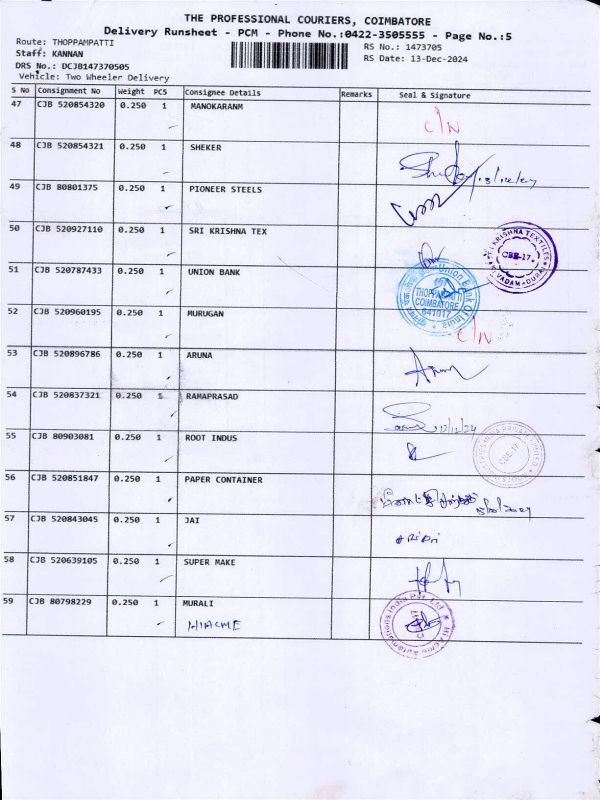 THE PROFESSIONAL COURIERS, COIMBATORE
Delivery Runsheet - PCM - Phone No.:0422-3505555 - Page No.:5
Route: THOPPAMPATTI
RS No.: 1473705
Staff: KANNAN
RS Date: 13-Dec-2024
DRS No.: DCJB147370505
Vehicle: Two Wheeler Delivery
S No Consignment No Weight PCS Consignee Details Remarks Seal & Signature
47 CJB 520854320 0.250 1 MANOKARANM
C/N
48 CJB 520854321 0.250 1 SHEKER
49 CJB 80801375 0.250 1 PIONEER STEELS
50 CJB 520927110 0.250 1 SRI KRISHNA TEX
KRISHNA TEXTILES
CBE-17
51 CJB 520787433 0.250 1 UNION BANK
Union Bank Of India
THOPPAMPATTI
COIMBATORE
641017
52 CJB 520960195 0.250 1 MURUGAN
C/N
53 CJB 520896786 0.250 1 ARUNA
54 CJB 520837321 0.250 1 RAMAPRASAD
55 CJB 80903081 0.250 1 ROOT INDUS
PRIVATE LIMITED
CBE-17
56 CJB 520851847 0.250 1 PAPER CONTAINER
57 CJB 520843045 0.250 1 JAI
58 CJB 520639105 0.250 1 SUPER MAKE
59 CJB 80798229 0.250 1 MURALI
HIACME